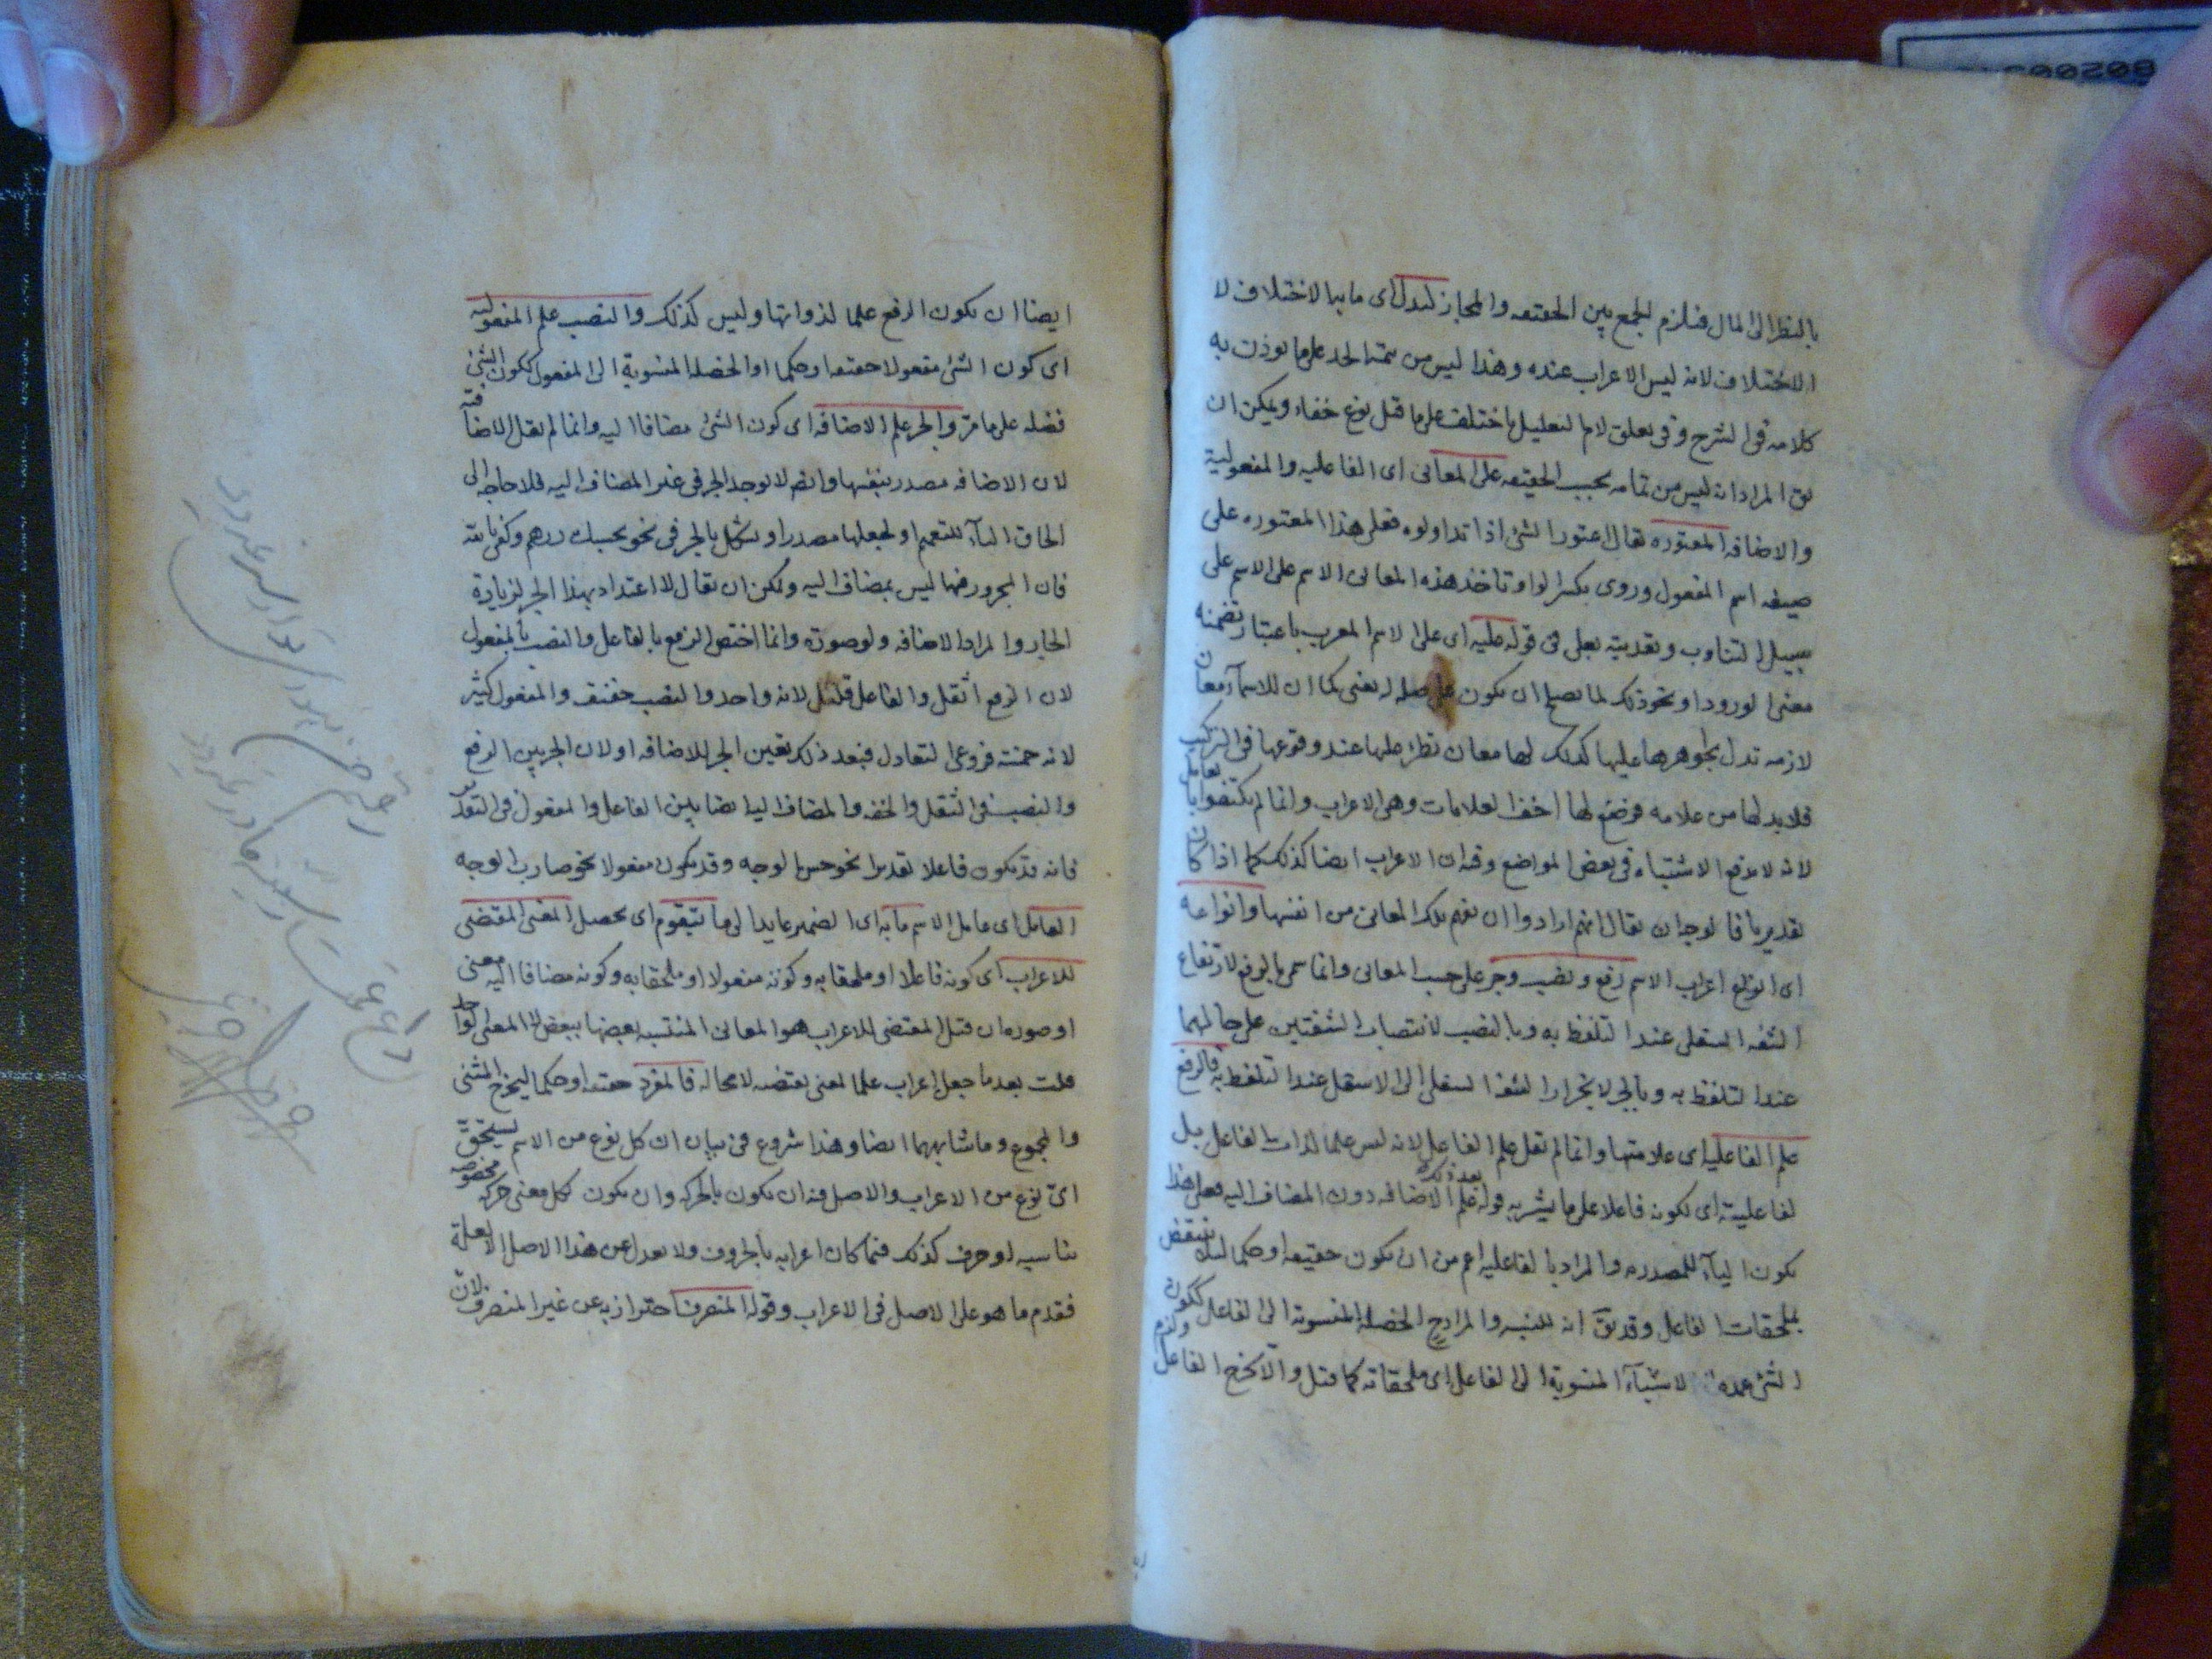 بالنظر الى المال فيلزم الجمع بين الحقيقه والمجاز ليدل اى ما به الاختلاف لا
الاختلاف لانه ليس الاعراب عنده وهذا ليس من تتمة الحد على ما يوذن به
كلامه فى الشرح وفى تعلق لام التعليل باختلف على ما قيل نوع خفاء ويمكن ان
يق المراد انه ليس من تمامه بحسب الحقيقه على المعانى اى الفاعليه والمفعولية
والاضافه المعتوره يقال اعتور الشئ اذا تداولوه فعلى هذا المعتوره على
صيغه اسم المفعول وروى بكسر الواو تاخذ هذه المعانى الاسم على الاسم على
سبيل التناوب وتعديته بعلى فى قوله عليه اى على الاسم المعرب باعتبار تضمنه
معنى الورود او نحو ذلك لما يصح ان يكون على صله له يعنى كما ان للاسماء معان
لازمه تدل بجواهرها عليها كذلك لها معان تطرء عليها عند وقوعها فى التركيب
فلا بد لها من علامه فوضع لها اخف العلامات وهى الاعراب وانما لم يكتفوا بالعامل
لانه لا يدفع الاشتباه فى بعض المواضع وفيه ان الاعراب ايضا كذلك كما اذا كان
تقديريا فالوجه ان يقال انهم ارادوا ان يفهم تلك المعانى من انفسها وانواعه
اى انواع اعراب الاسم رفع ونصب وجر على حسب المعانى وانما سمى بالرفع لارتفاع
الشفه السفلى عند التلفظ به وبالنصب لانتصاب الشفتين على حالهما
عند التلفظ به وبالجر لانجرار الشفه السفلى الى الاسفل عند التلفظ به فالرفع
علم الفاعليه اى علامتها وانما لم يقل علم الفاعل لانه ليس علما لذات الفاعل بل
لفاعليته اى لكونه فاعلا على ما يشير به قوله بعد ذلك علم الاضافه دون المضاف اليه فعلى هذا
يكون الياء للمصدريه والمراد بالفاعليه اعم من ان يكون حقيقه او حكما لئلا ينتقض
بملحقات الفاعل وقد يق انه للنسبه والمراد ح الخصله المنسوبة الى الفاعل ككون
الشئ عمده الاشياء المنسوبة الى الفاعل اى ملحقاته كما قيل والا لخرج الفاعل ولزم
ايضا ان يكون الرفع علما لذواتها وليس كذلك والنصب علم المفعوليه
اى كون الشئ مفعولا حقيقه او حكما او الخصله المنسوبة الى المفعول ككون الشئ
فضله على ما مر والجر علم الاضافه اى كون الشئ مضافا اليه وانما لم يقل الاضافيه
لان الاضافه مصدر بنفسها وايض لا يوجد الجر فى غير المضاف اليه فلا حاجه الى
الحاق الياء للتعميم او لجعلها مصدرا ويشكل بالجر فى نحو بحسبك درهم وكفى بالله
فان المجرور فيها ليس بمضاف اليه ويمكن ان يقال لا اعتداد بهذا الجر لزيادة
الجار والمراد الاضافه ولو صورة وانما اختص الرفع بالفاعل والنصب بالمفعول
لان الرفع اثقل والفاعل قليل لانه واحد والنصب خفيف والمفعول كثير
لانه خمسة فروعى التعادل فبعد ذلك تعين الجر للاضافه او لان الجر بين الرفع
والنصب فى الثقل والخفه والمضاف اليه ايضا بين الفاعل والمفعول فى التقدير
فانه قد يكون فاعلا تقديرا نحو حسن الوجه وقد يكون مفعولا نحو ضارب الوجه
العامل اى عامل الاسم ما به اى الضمير عايد الى ما يتقوم اى يحصل المعنى المقتضى
للاعراب اى كونه فاعلا او ملحقا به وكونه مفعولا او ملحقا به وكونه مضافا اليه معنى
او صوره ان قيل المقتضى للاعراب هو المعانى الملتبسه بعضها ببعض لا المعنى الواحد
قلت بعد ما جعل اعراب علما لمعنى يقتضيه لا محاله فالمفرد حقيقه او حكما ليخرج المثنى
والمجموع وما شابههما ايضا وهذا شروع فى بيان ان كل نوع من الاسم يستحق
اى نوع من الاعراب والاصل فيه ان يكون بالحركه وان يكون لكل معنى حركه مخصوصه
تناسبه او حرف كذلك فيما كان اعرابه بالحروف ولا يعدل عن هذا الاصل الا لعلة
فقدم ما هو على الاصل فى الاعراب وقوله المنصرف احتراز به عن غير المنصرف لان